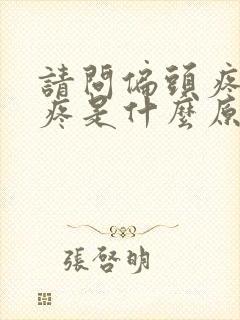 請問偏頭疼
疼是什麼原
張啓明